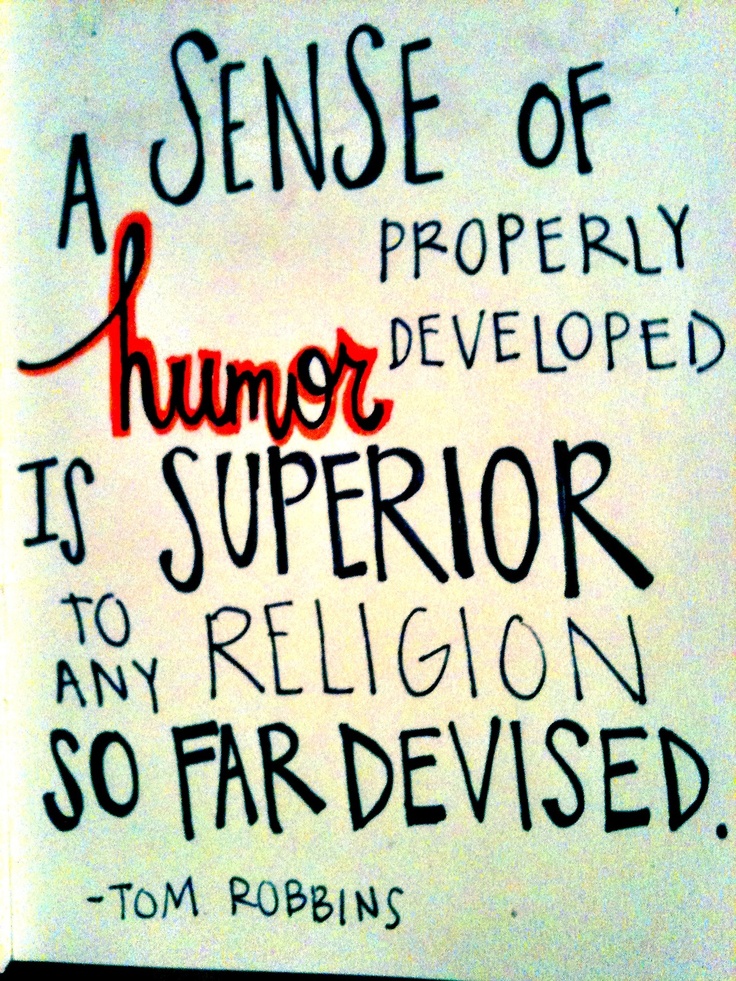 A SENSE OF
humor PROPERLY
DEVELOPED
IS SUPERIOR
TO
ANY RELIGION
SO FAR DEVISED.
-TOM ROBBINS